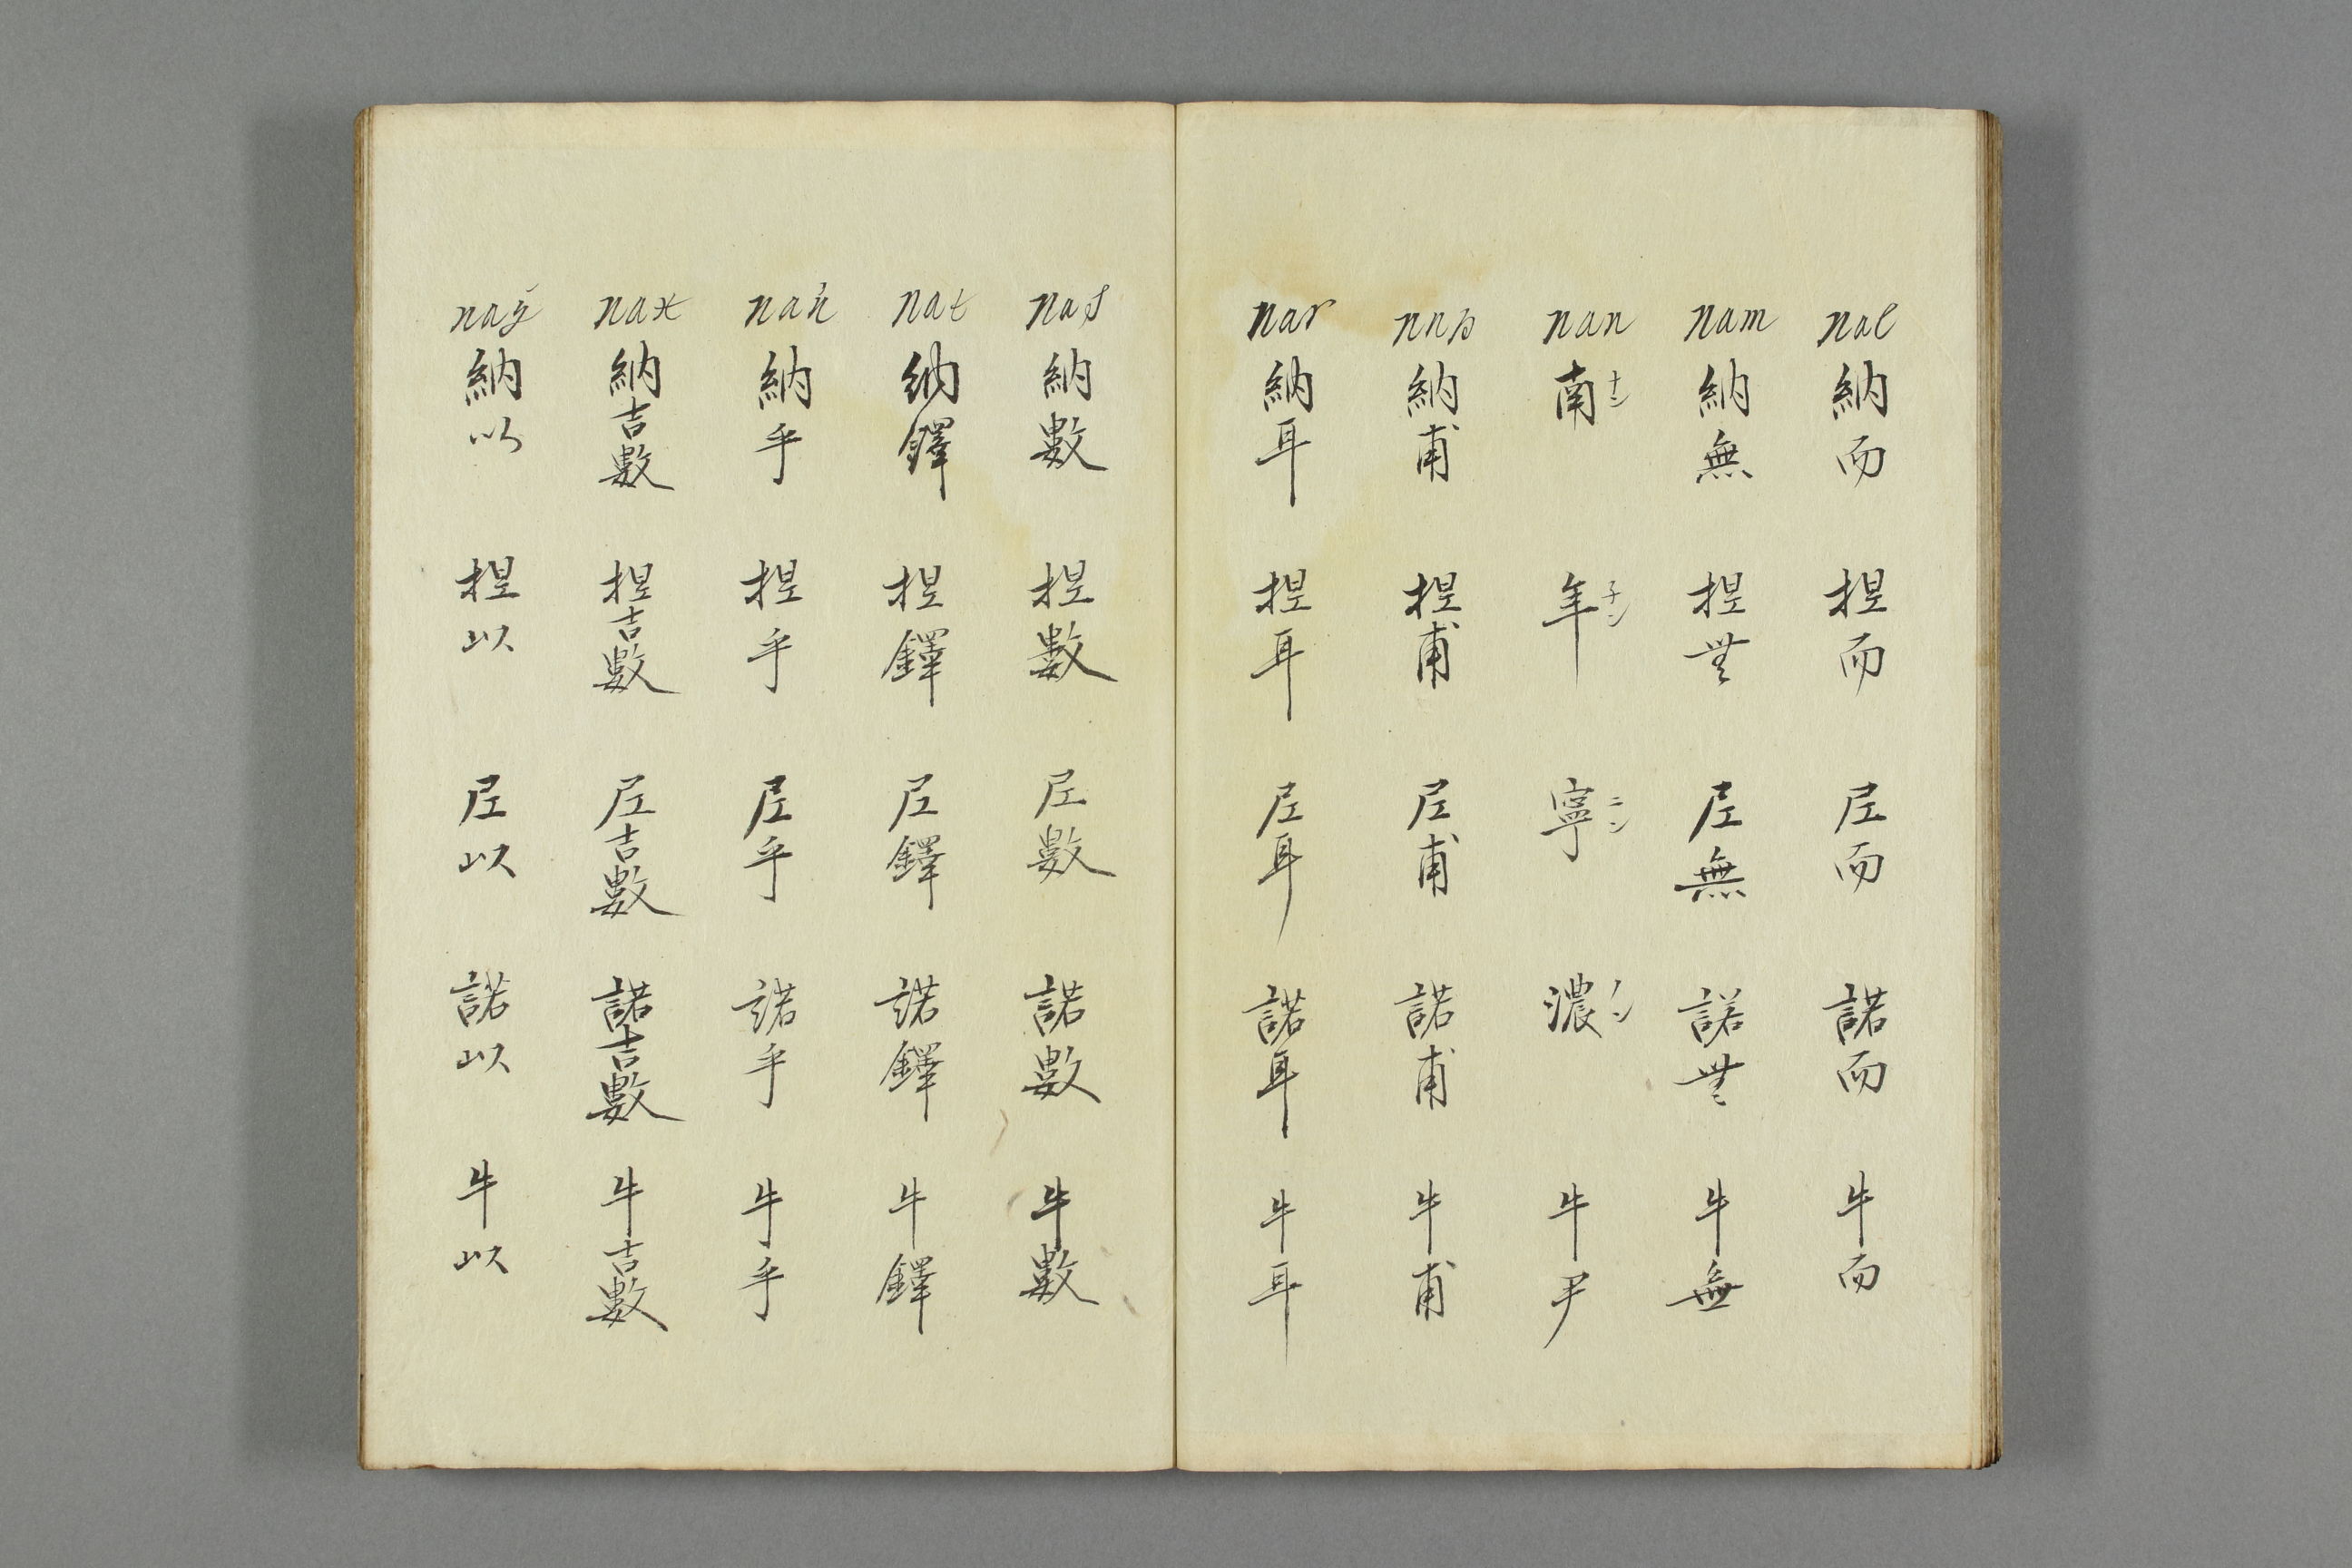 nal 納而 揑而 𡰱而 諾而 牛而
nam 納無 揑無 𡰱無 諾無 牛無
nan 南ナン 年子ン 寧ニン 濃ノン 牛尹
nnp 納甫 揑甫 𡰱甫 諾甫 牛甫
nar 納耳 揑耳 𡰱耳 諾耳 牛耳
nas 納數 揑數 𡰱數 諾數 牛數
nat 納鐸 揑鐸 𡰱鐸 諾鐸 牛鐸
nah 納乎 揑乎 𡰱乎 諾乎 牛乎
nax 納吉數 揑吉數 𡰱吉數 諾吉數 牛吉數
naÿ 納以 揑以 𡰱以 諾以 牛以